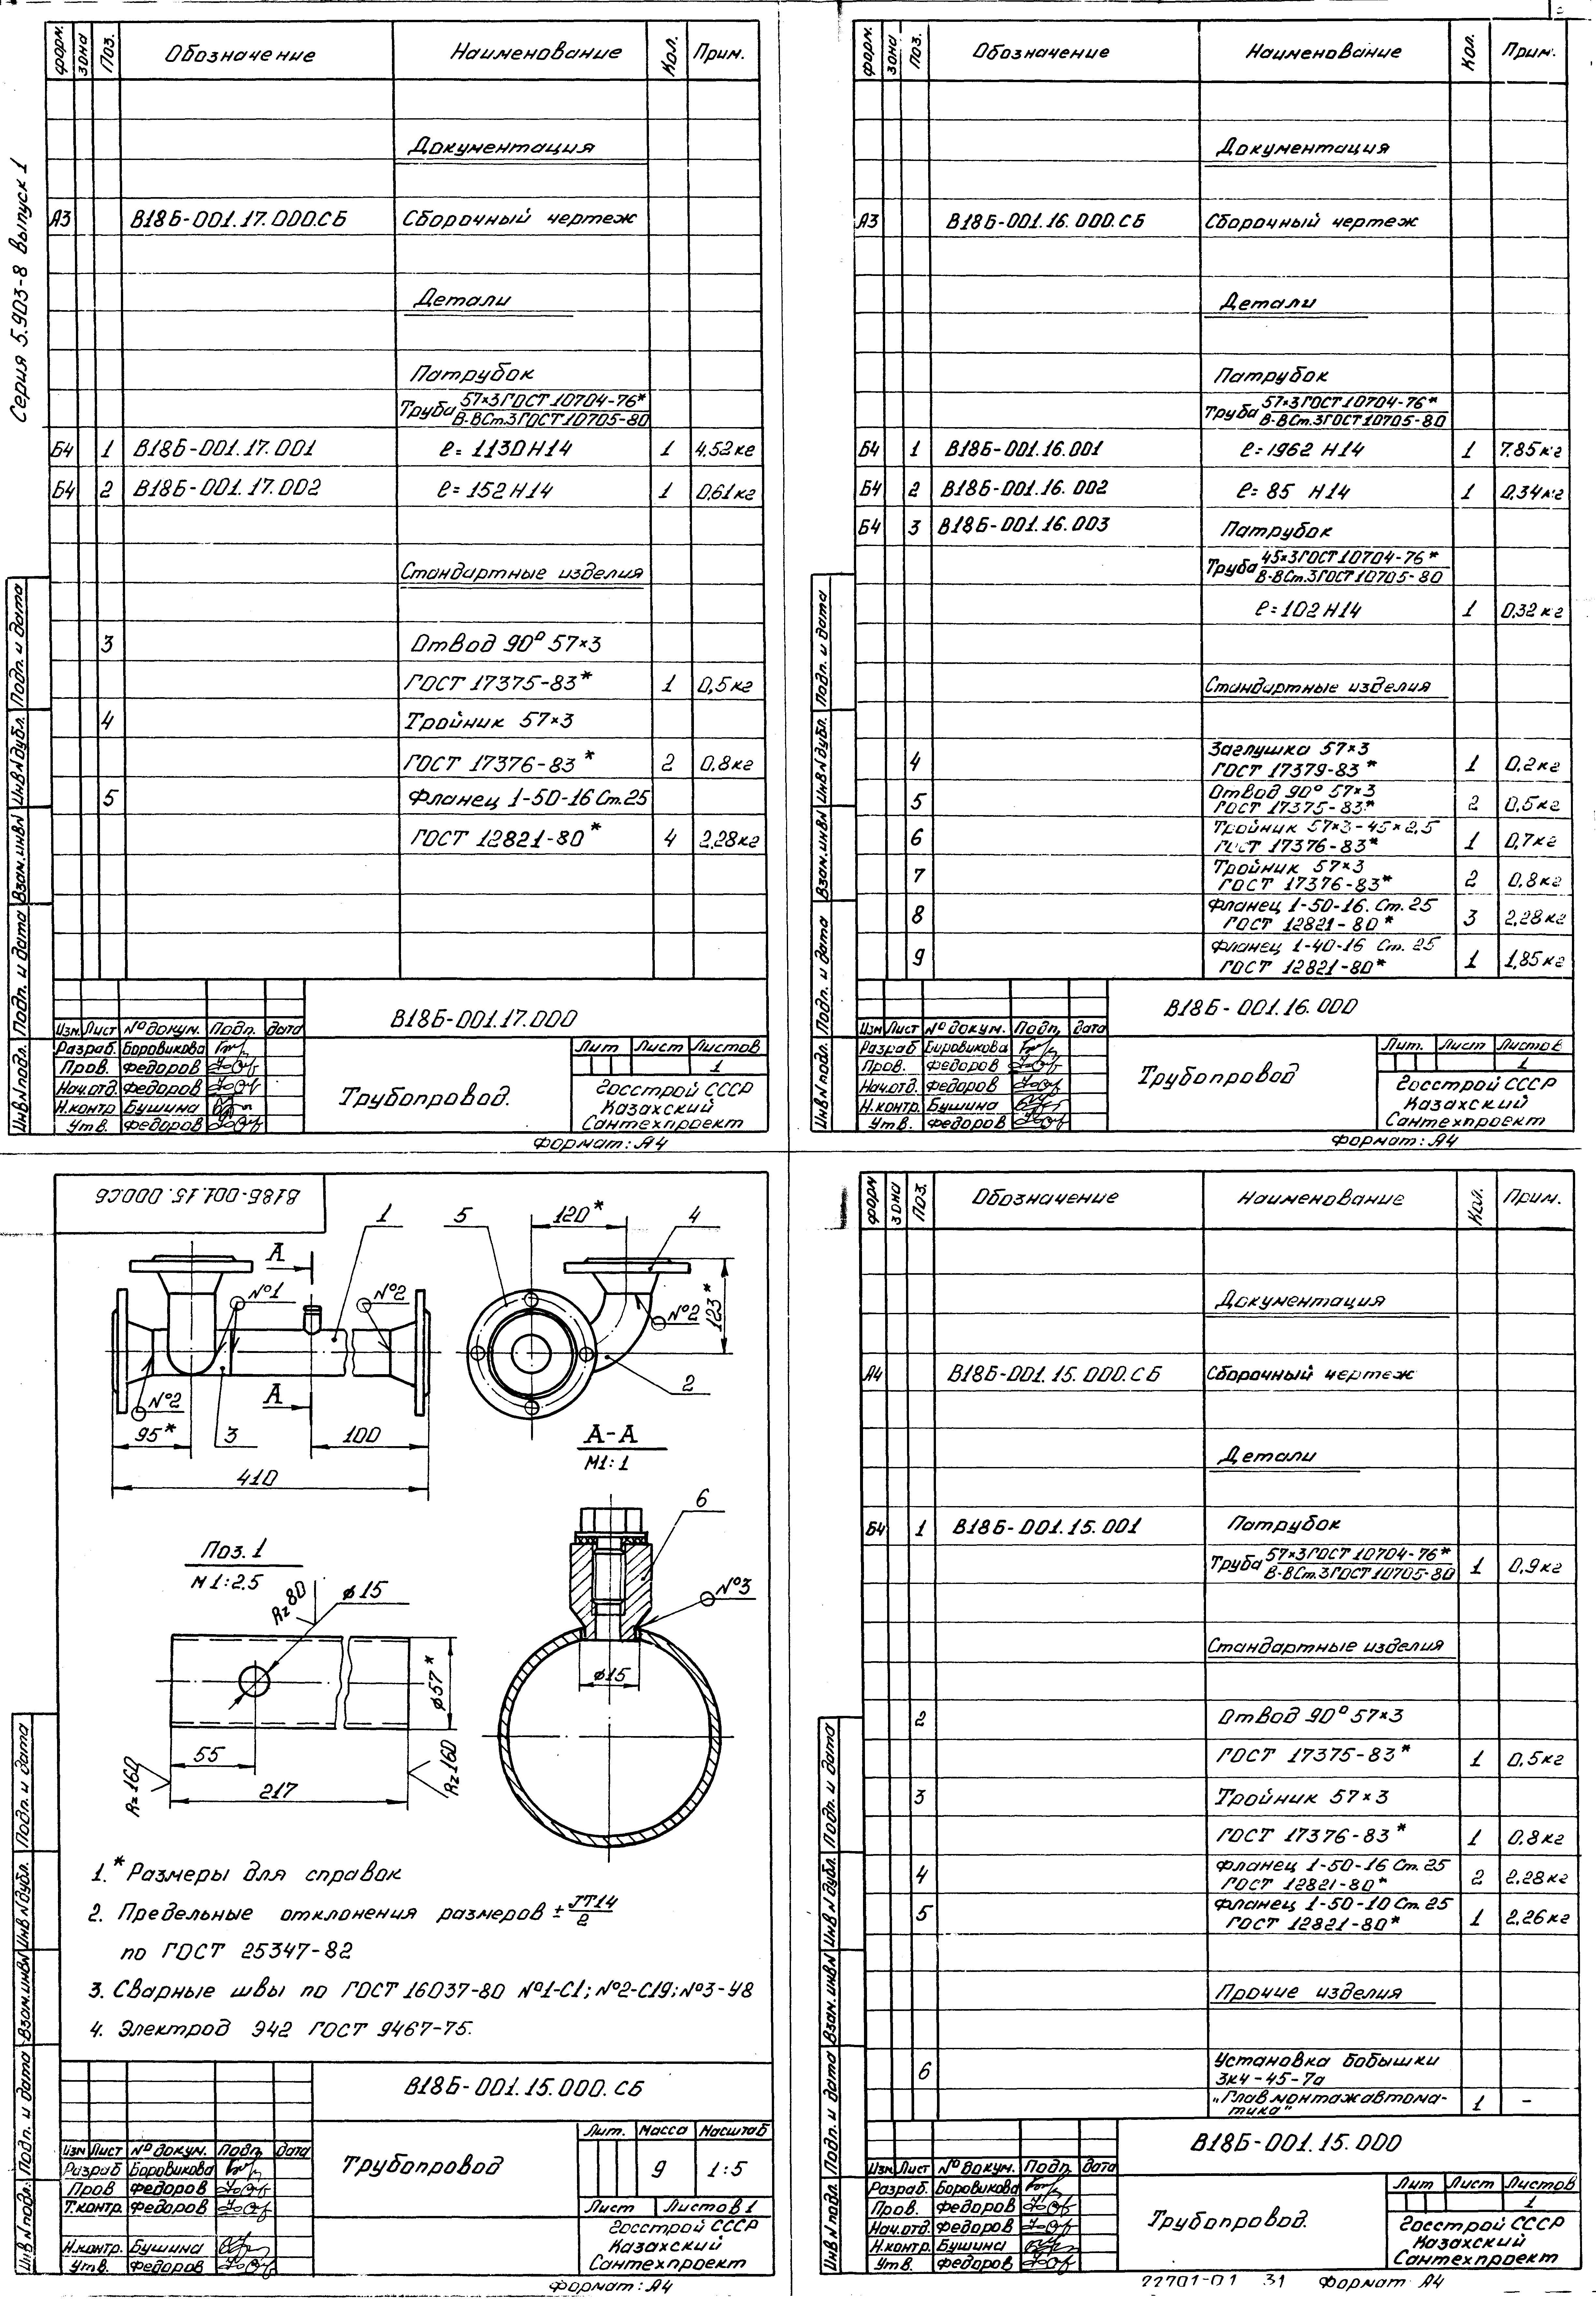 Серия 5.903-8 Выпуск 1
Форм. Зона Поз. Обозначение Наименование Кол. Прим.
Документация
А3 В18Б-001.17.000.СБ Сборочный чертеж
Детали
Патрубок
Труба 57×3 ГОСТ 10704-76*
В-ВСт.3 ГОСТ 10705-80
Б4 1 В18Б-001.17.001 ℓ=1130 Н14 1 4,52кг
Б4 2 В18Б-001.17.002 ℓ=152 Н14 1 0,61кг
Стандартные изделия
3 Отвод 90° 57×3
ГОСТ 17375-83* 1 0,5кг
4 Тройник 57×3
ГОСТ 17376-83* 2 0,8кг
5 Фланец 1-50-16 Ст.25
ГОСТ 12821-80* 4 2,28кг
Инв.N подл. Подп. и дата Взам.инв.N Инв.N дубл. Подп. и дата
В18Б-001.17.000
Изм. Лист № докум. Подп. Дата
Разраб. Боровикова
Пров. Федоров
Нач.отд. Федоров
Н.контр. Бушина
Утв. Федоров
Трубопровод.
Лит Лист Листов
1
Госстрой СССР
Казахский
Сантехпроект
Формат: А4
Форм. Зона Поз. Обозначение Наименование Кол. Прим.
Документация
А3 В18Б-001.16.000.СБ Сборочный чертеж
Детали
Патрубок
Труба 57×3 ГОСТ 10704-76*
В-ВСт.3 ГОСТ 10705-80
Б4 1 В18Б-001.16.001 ℓ=1962 Н14 1 7,85кг
Б4 2 В18Б-001.16.002 ℓ=85 Н14 1 0,34кг
Б4 3 В18Б-001.16.003 Патрубок
Труба 45×3 ГОСТ 10704-76*
В-ВСт.3 ГОСТ 10705-80
ℓ=102 Н14 1 0,32 кг
Стандартные изделия
4 Заглушка 57×3
ГОСТ 17379-83* 1 0,2кг
5 Отвод 90° 57×3
ГОСТ 17375-83* 2 0,5кг
6 Тройник 57×3-45×2,5
ГОСТ 17376-83* 1 0,7кг
7 Тройник 57×3
ГОСТ 17376-83* 2 0,8кг
8 Фланец 1-50-16. Ст.25
ГОСТ 12821-80* 3 2,28кг
9 Фланец 1-40-16 Ст.25
ГОСТ 12821-80* 1 1,85кг
Инв.N подл. Подп. и дата Взам.инв.N Инв.N дубл. Подп. и дата
В18Б-001.16.000
Изм Лист № докум. Подп. Дата
Разраб Боровикова
Пров. Федоров
Нач.отд. Федоров
Н.контр. Бушина
Утв. Федоров
Трубопровод
Лит. Лист Листов
1
Госстрой СССР
Казахский
Сантехпроект
Формат: А4
В18Б-001.15.000.СБ
А 1 5 120* 4
№1 №2 №2 123*
№2 А 2
95* 3 100
410
А-А
М1:1
6
Поз. 1
М 1:2,5
Rz80 ⌀15
№3
⌀57*
⌀15
55
217
Rz160 Rz160
1. *Размеры для справок
2. Предельные отклонения размеров ± JT14/2
по ГОСТ 25347-82
3. Сварные швы по ГОСТ 16037-80 №1-С1; №2-С19; №3-У8
4. Электрод Э42 ГОСТ 9467-75.
Инв.N подл. Подп. и дата Взам.инв.N Инв.N дубл. Подп. и дата
В18Б-001.15.000.СБ
Изм Лист № докум. Подп. Дата
Разраб Боровикова
Пров Федоров
Т.контр. Федоров
Н.контр. Бушина
Утв. Федоров
Трубопровод
Лит. Масса Масштаб
9 1:5
Лист Листов 1
Госстрой СССР
Казахский
Сантехпроект
Формат: А4
Форм Зона Поз. Обозначение Наименование Кол. Прим.
Документация
А4 В18Б-001.15.000.СБ Сборочный чертеж
Детали
Б4 1 В18Б-001.15.001 Патрубок
Труба 57×3 ГОСТ 10704-76*
В-ВСт.3 ГОСТ 10705-80 1 0,9кг
Стандартные изделия
2 Отвод 90° 57×3
ГОСТ 17375-83* 1 0,5кг
3 Тройник 57×3
ГОСТ 17376-83* 1 0,8кг
4 Фланец 1-50-16 Ст.25
ГОСТ 12821-80* 2 2,28кг
5 Фланец 1-50-10 Ст.25
ГОСТ 12821-80* 1 2,26кг
Прочие изделия
6 Установка бобышки
ЗК4-45-7а
"Главмонтажавтома-
тика" 1 -
Инв.N подл. Подп. и дата Взам.инв.N Инв.N дубл. Подп. и дата
В18Б-001.15.000
Изм. Лист № докум. Подп. Дата
Разраб. Боровикова
Пров. Федоров
Нач.отд. Федоров
Н.контр. Бушина
Утв. Федоров
Трубопровод.
Лит Лист Листов
1
Госстрой СССР
Казахский
Сантехпроект
22701-01 31 Формат А4